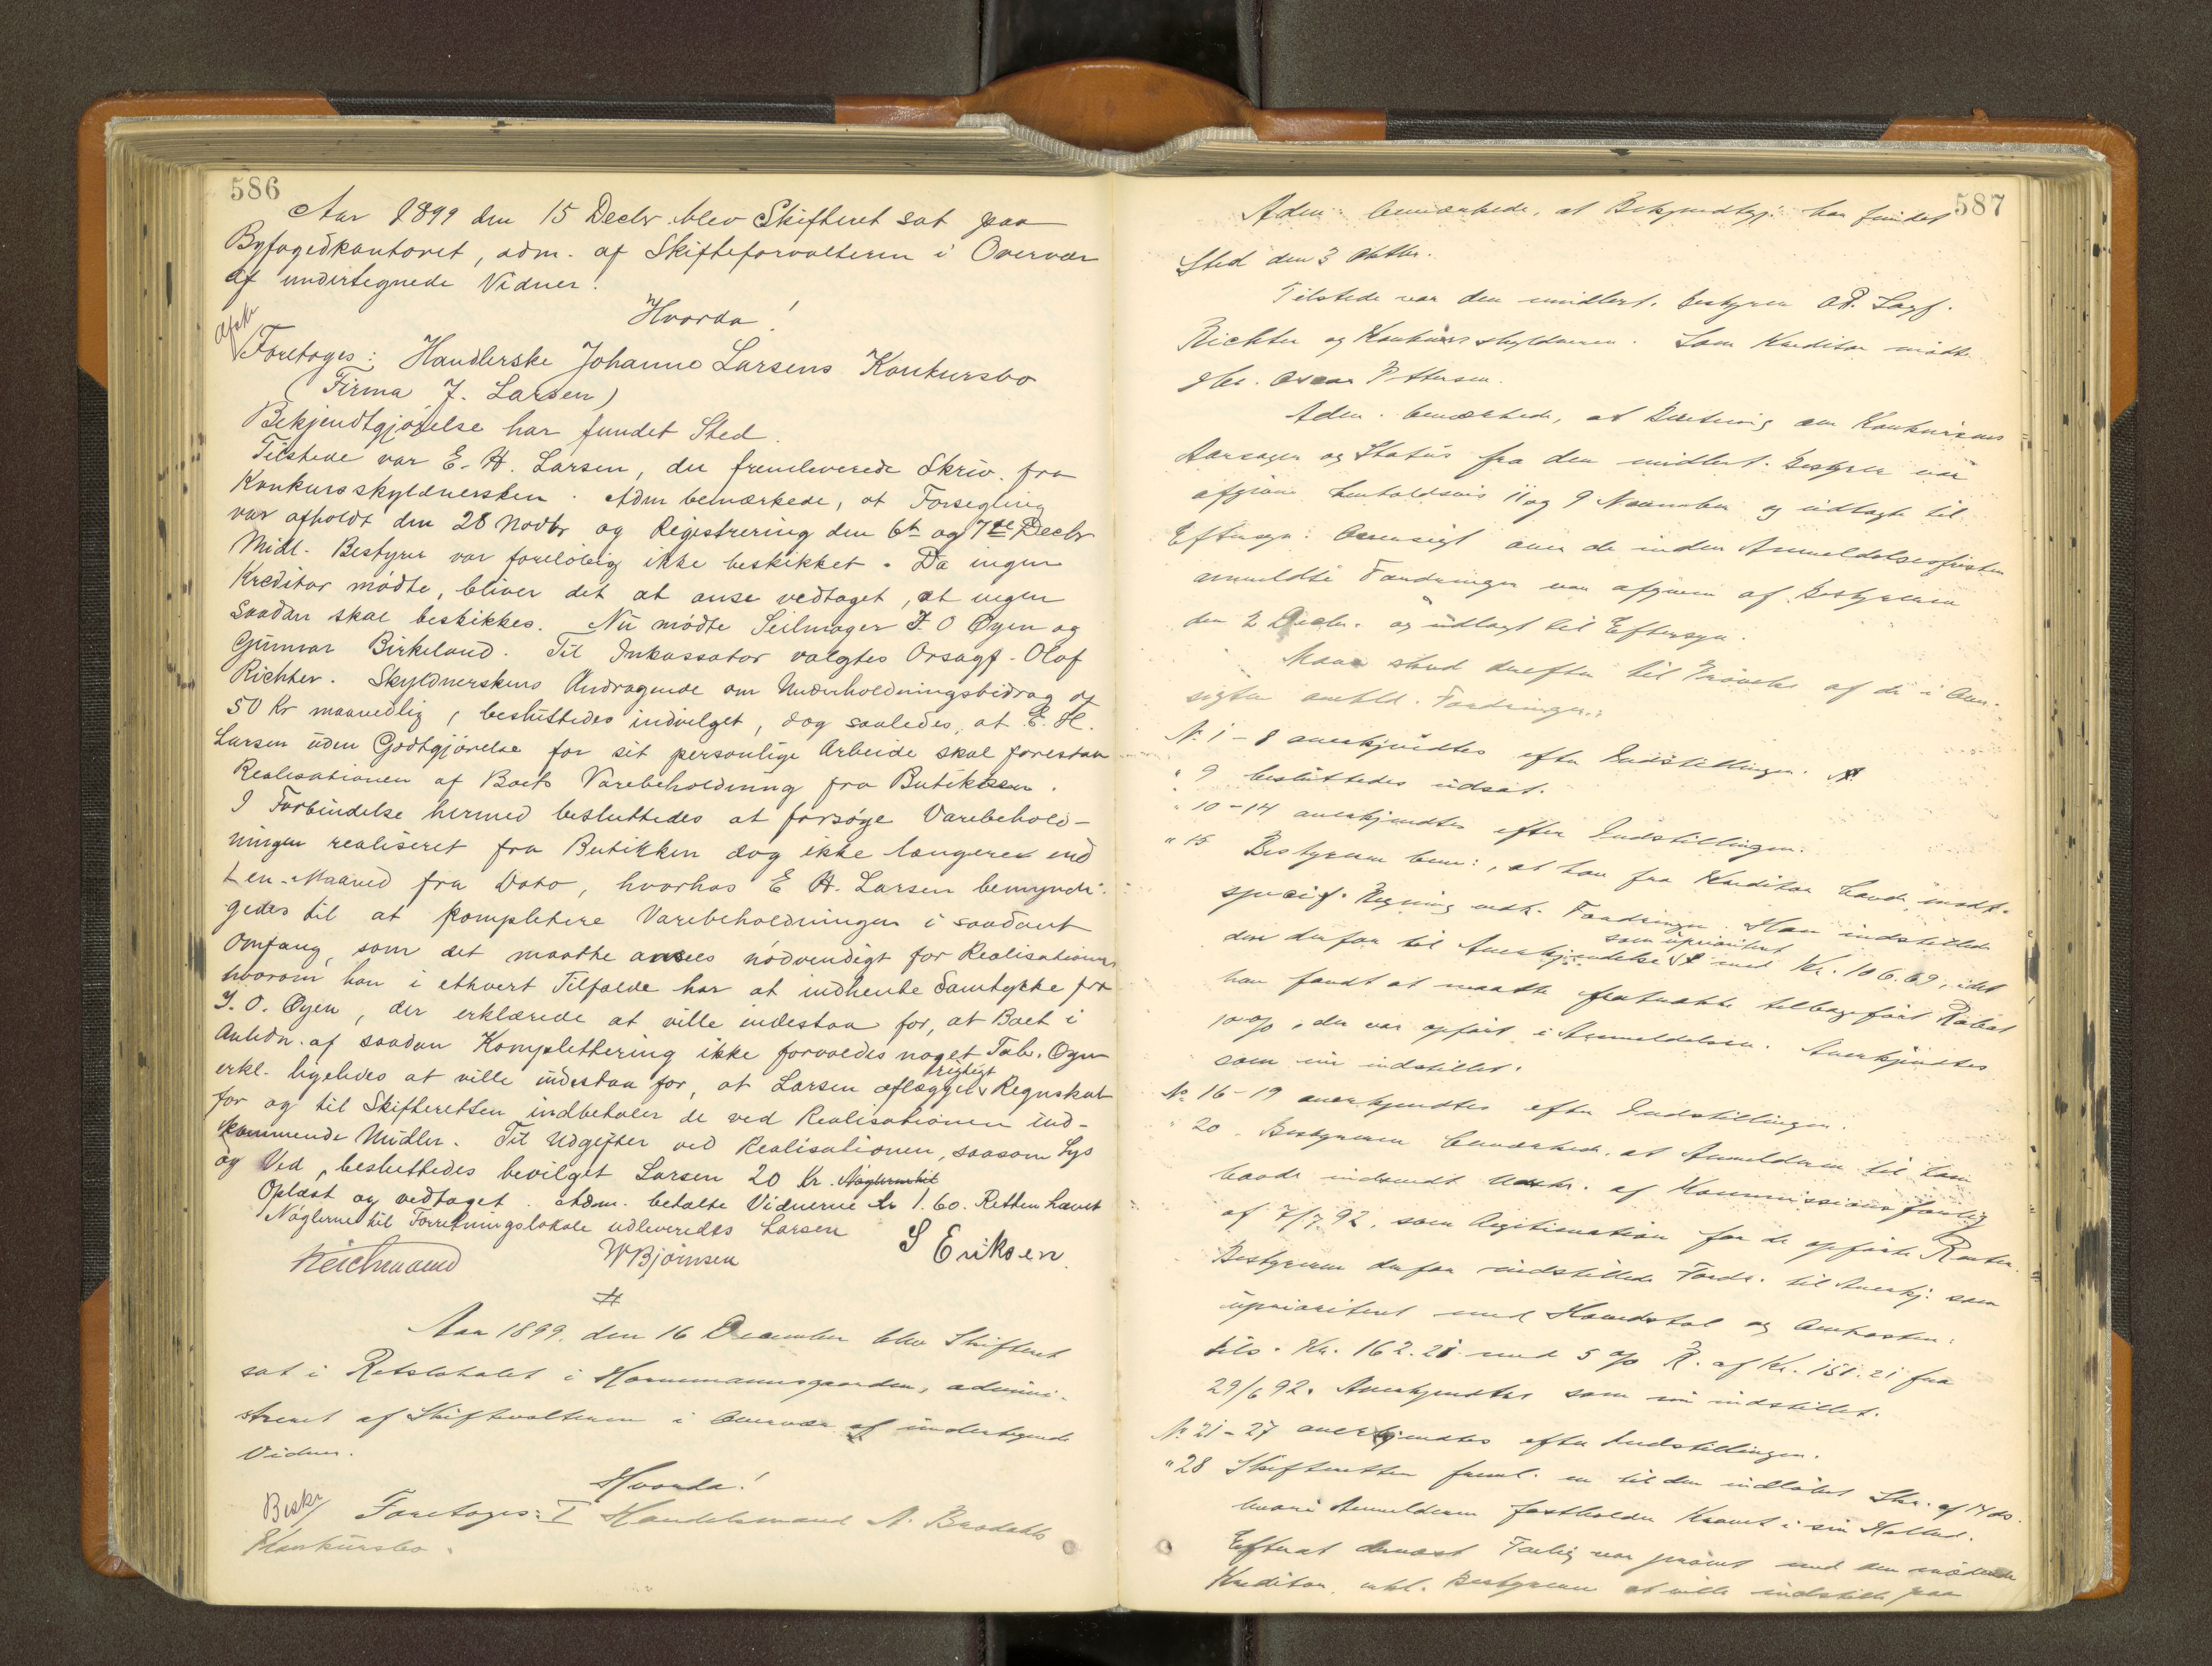 586
Aar 1899 den 15 Decbr blev Skifteret sat paa
Byfogedkontoret, adm. af Skifteforvalteren i Overvær
af undertegnede Vidner.
Hvorda!
Afskr
Foretoges: Handlerske Johanne Larsens Konkursbo
(Firma J. Larsen)
Bekjendtgjørelse har fundet Sted.
Tilstede var E. H. Larsen, der fremleverede Skriv. fra
Konkursskyldnersken. Adm bemærkede, at Forsegling
var afholdt den 28 Novbr og Registrering den 6te og 7de Decbr
Midl. Bestyrer var foreløbig ikke beskikket. Da ingen
Kreditor mødte, bliver det at anse vedtaget, at ingen
saadan skal beskikkes. Nu mødte Seilmager J. O Øyen og
Gunnar Birkeland. Til Inkassator valgtes Orsagf. Olaf
Richter. Skyldnerskens Andragende om Underholdningsbidrag af
50 Kr maanedlig, besluttedes indvilget, dog saaledes, at E. H.
Larsen uden Godtgjørelse for sit personlige Arbeide skal forestaa
Realisationen af Boets Varebeholdning fra Butikken.
I Forbindelse hermed besluttedes at forsøge Varebehold-
ningen realiseret fra Butikken dog ikke længere end
1 en Maaned fra Dato, hvorhos E H. Larsen bemyndi-
gedes til at komplettere Varebeholdningen i saadant
Omfang, som det maatte ansees nødvendigt for Realisationen
hvorom han i ethvert Tilfælde har at indhente Samtykke fra
J. O. Øyen, der erklærede at ville indestaa for, at Boet i
Anledn. af saadan Komplettering ikke forvoldes noget Tab. Øyen
erkl. ligeledes at ville indestaa for, at Larsen aflægger rigtigt Regnskab
for og til Skifteretten indbetaler de ved Realisationen ind-
kommende Midler. Til Udgifter ved Realisationen, saasom Lys
og Ved, besluttedes bevilget Larsen 20 Kr. Nøglerne til
Oplæst og vedtaget. Adm. betalte Vidnerne Kr 1.60. Retten hævet
Nøglerne til Forretningslokale udleveredes Larsen
Reichwand W Bjørnsen S Eriksen.
Aar 1899. den 16 December blev Skifteret
sat i Retslokalet i Hornemannsgaarden, admini-
streret af Skifteforvalteren i Overvær af undertegnede
Vidner.
Hvorda!
Beskr
Foretoges: I Handelsmand A. Brodahls
Konkursbo.
587
Adm: bemærkede, at Bekjendtgj: har fundet
Sted den 3 Oktbr.
Tilstede var den midlert. bestyrer O.R. Sagf.
Richter og Konkursskyldneren. Som Kreditor mødte
Hr. Oscar Pettersen.
Adm. bemærkede, at Beretning om Konkursens
Aarsager og Status fra den midlert. Bestyrer var
afgivne henholdsvis 11 og 9 November og udlagte til
Eftersyn: Oversigt over de inden Anmeldelsesfristen
anmeldte Fordringer var afgiven af Bestyreren
den 2 Decbr. og udlagt til Eftersyn.
Man skred derefter til Prøvelse af de i Over-
sigten anmeldte Fordringer:
No 1-8 anerkjendtes efter Indstillingen.
" 9 besluttedes udsat.
" 10-14 anerkjendtes efter Indstillingen.
" 15 Bestyreren bem:, at han fra Kreditor havde modt.
specif. Regning vedk. Fordringen. Han indstillede
den derfor til Anerkjendelse som uprioriteret med Kr. 106.69, idet
han fandt at maatte fratrække tilbageført Rabat
10 %, der var opført i Anmeldelsen. Anerkjendtes
som nu indstillet.
No 16-19 anerkjendtes efter Indstillingen.
" 20. Bestyreren bemærkede, at Anmelderen til ham
havde indsendt Udskr. af Kommissionsforlig
af 7/7 92, som Legitimation for de opførte Renter.
Bestyreren derfor indstillede Fordr. til Anerkj. som
uprioriteret med Hovedstol og Omkostn:
tils. Kr. 162.21 med 5 % R. af Kr. 151.21 fra
29/6 92. Anerkjendtes som nu indstillet.
No 21-27 anerkjendtes efter Indstillingen.
" 28 Skifteretten freml. en til den indløbet Skr. af 14 ds.
hvori Anmelderen fastholder Kravet i sin Helhed.
Efterat dernæst Forlig var prøvet med den mødende
Kreditor, erkl. Bestyreren at ville indstille paa